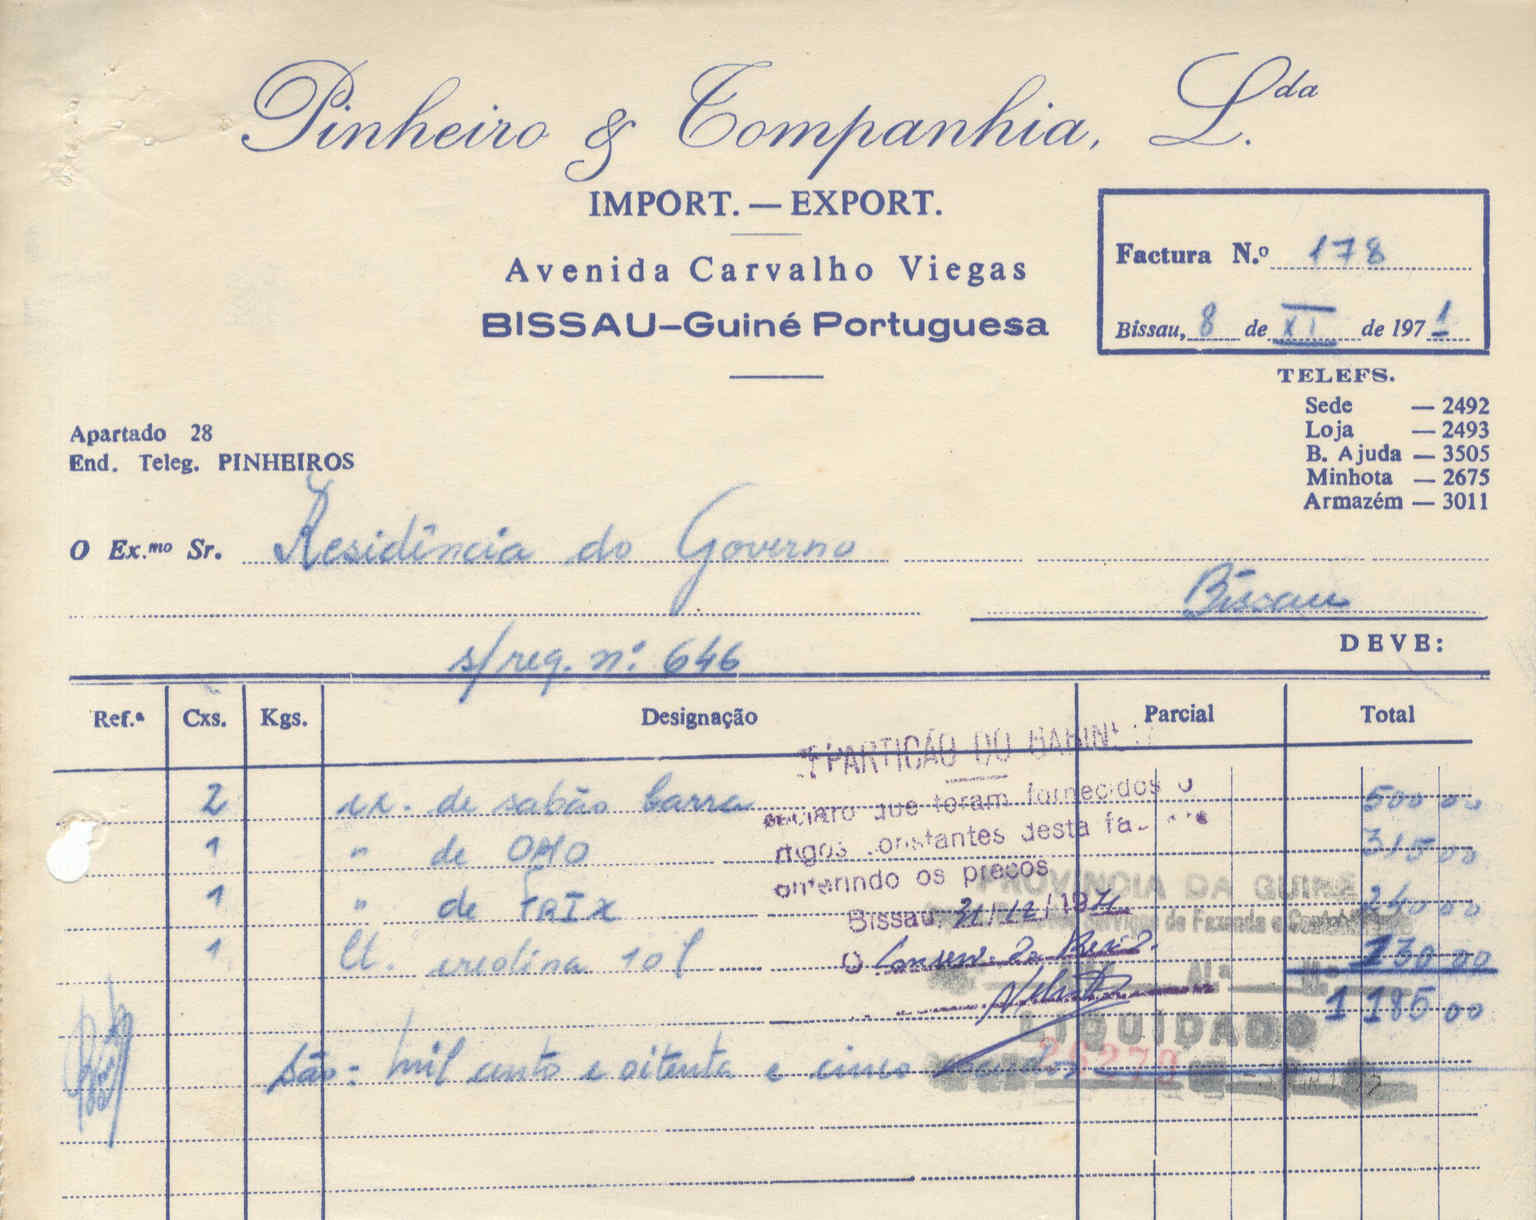 Pinheiro & Companhia, L.da
IMPORT. — EXPORT.
Avenida Carvalho Viegas
BISSAU—Guiné Portuguesa
Factura N.º 178
Bissau, 8 de XI de 1971
TELEFS.
Sede — 2492
Loja — 2493
B. Ajuda — 3505
Minhota — 2675
Armazém — 3011
Apartado 28
End. Teleg. PINHEIROS
O Ex.mo Sr. Residência do Governo
Bissau
DEVE:
s/req. nº 646
Ref.ª Cxs. Kgs. Designação Parcial Total
2 cx. de sabão barra 500 00
1 " de OMO 315 00
1 " de TRIX 240 00
1 lt. creolina 10 l 130 00
1185 00
São: mil cento e oitenta e cinco
REPARTIÇÃO DO GABINETE
declaro que foram fornecidos o
artigos constantes desta
conferindo os preços
Bissau, 31/12/1971
O
PROVÍNCIA DA GUINÉ
Serviços de Fazenda e Contabilidade
LIQUIDADO
26279